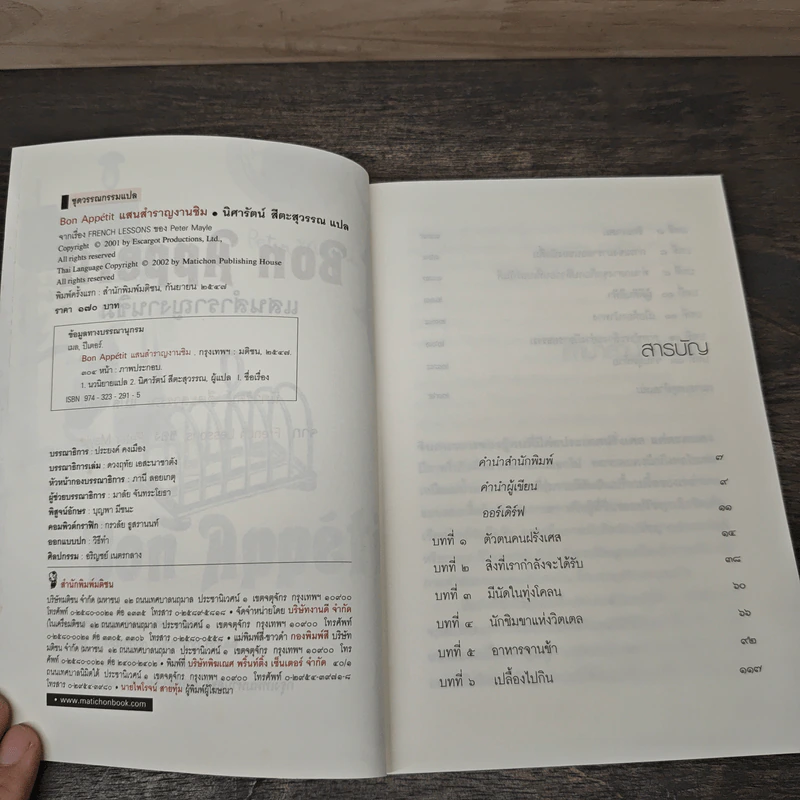 ชุดวรรณกรรมแปล
Bon Appétit แสนสำราญงานชิม • นิศารัตน์ สีตะสุวรรณ แปล
จากเรื่อง FRENCH LESSONS ของ Peter Mayle
Copyright © 2001 by Escargot Productions, Ltd.,
All rights reserved
Thai Language Copyright © 2002 by Matichon Publishing House
All rights reserved
พิมพ์ครั้งแรก : สำนักพิมพ์มติชน, กันยายน ๒๕๔๗
ราคา ๑๗๐ บาท
ข้อมูลทางบรรณานุกรม
เมล, ปีเตอร์.
Bon Appétit แสนสำราญงานชิม . กรุงเทพฯ : มติชน, ๒๕๔๗.
๓๐๔ หน้า : ภาพประกอบ.
1. นวนิยายแปล 2. นิศารัตน์ สีตะสุวรรณ, ผู้แปล I. ชื่อเรื่อง
ISBN 974 - 323 - 291 - 5
บรรณาธิการ : ประยงค์ คงเมือง
บรรณาธิการเล่ม : ดวงฤทัย เอสะนาชาตัง
หัวหน้ากองบรรณาธิการ : ภานี ลอยเกตุ
ผู้ช่วยบรรณาธิการ : มาลัย จันทระโยธา
พิสูจน์อักษร : บุญพา มีชนะ
คอมพิวต์กราฟิก : กรวลัย ธูสรานนท์
ออกแบบปก : วิธีทำ
ศิลปกรรม : อริญชย์ เนตรกลาง
สำนักพิมพ์มติชน
บริษัทมติชน จำกัด (มหาชน) ๑๒ ถนนเทศบาลนฤมาล ประชานิเวศน์ ๑ เขตจตุจักร กรุงเทพฯ ๑๐๙๐๐
โทรศัพท์ ๐-๒๕๘๐-๐๐๒๑ ต่อ ๑๓๓๕ โทรสาร ๐-๒๕๘๙-๕๘๑๘ • จัดจำหน่ายโดย บริษัทงานดี จำกัด
(ในเครือมติชน) ๑๒ ถนนเทศบาลนฤมาล ประชานิเวศน์ ๑ เขตจตุจักร กรุงเทพฯ ๑๐๙๐๐ โทรศัพท์
๐-๒๕๘๐-๐๐๒๑ ต่อ ๓๓๐๕, ๓๓๐๖ โทรสาร ๐-๒๕๘๐-๐๕๕๘ • แม่พิมพ์สี-ขาวดำ กองพิมพ์สี บริษัท
มติชน จำกัด (มหาชน) ๑๒ ถนนเทศบาลนฤมาล ประชานิเวศน์ ๑ เขตจตุจักร กรุงเทพฯ ๑๐๙๐๐ โทรศัพท์
๐-๒๕๘๐-๐๐๒๑ ต่อ ๒๔๐๐-๒๔๐๒ • พิมพ์ที่ บริษัทพิฆเณศ พริ้นท์ติ้ง เซ็นเตอร์ จำกัด ๔๐/๑
ถนนเทศบาลนิมิตใต้ ประชานิเวศน์ ๑ เขตจตุจักร กรุงเทพฯ ๑๐๙๐๐ โทรศัพท์ ๐-๒๙๕๔-๓๙๗๑-๘
โทรสาร ๐-๒๙๕๔-๓๙๘๐ • นายไพโรจน์ สายทุ้ม ผู้พิมพ์ผู้โฆษณา
• www.matichonbook.com
สารบัญ
คำนำสำนักพิมพ์ ๗
คำนำผู้เขียน ๙
ออร์เดิร์ฟ ๑๑
บทที่ ๑ ตัวตนคนฝรั่งเศส ๑๔
บทที่ ๒ สิ่งที่เรากำลังจะได้รับ ๓๘
บทที่ ๓ มีนัดในทุ่งโคลน ๖๐
บทที่ ๔ นักชิมขาแห่งวิตเตล ๖๖
บทที่ ๕ อาหารจานช้า ๙๒
บทที่ ๖ เปลื้องไปกิน ๑๑๗